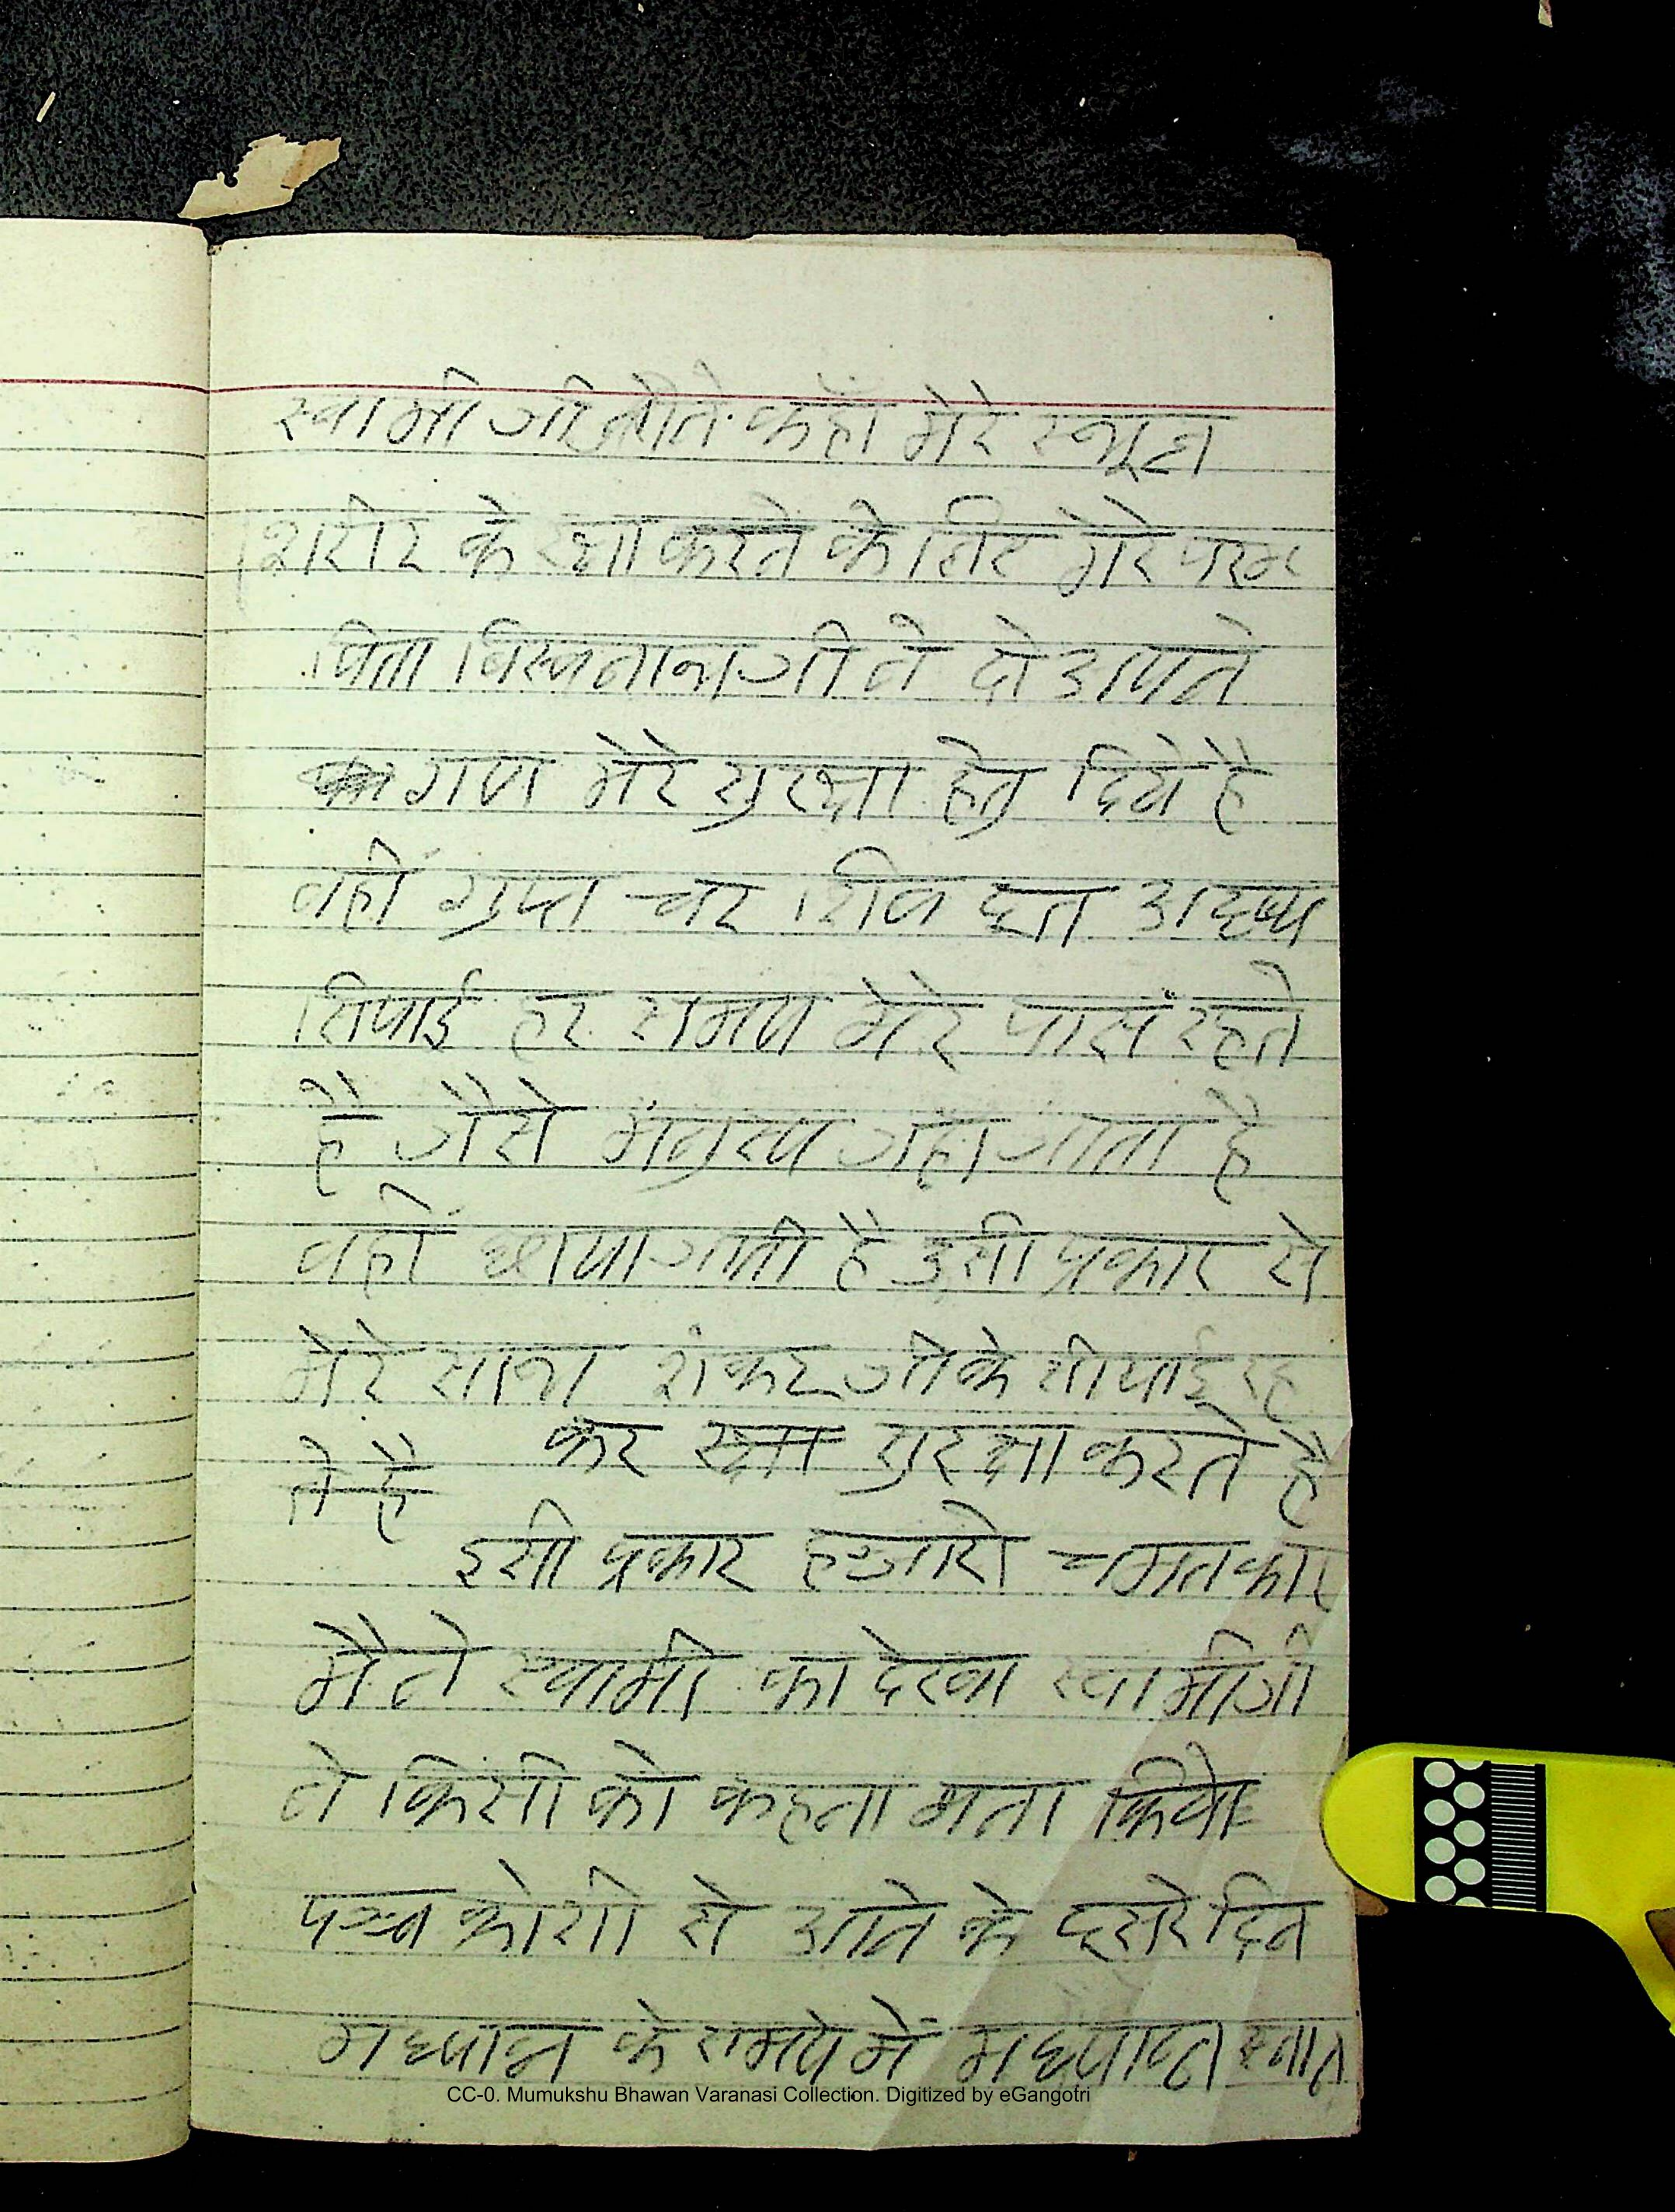 स्वामी जी ने कहाँ मेरे स्थूल
शरीर के रक्षा करने के लिए मेरे परम
पिता विस्वनाथ जी ने दो अपने
गण मेरे सुरक्षा हेतु दिये है
वहीं गुप्त चर शिव दूत अदृष्य
सिपाई हर समय मेरे पास रहते
है जैसे मनुस्य जहा जाता है
वहीं छाया जाती है उसी प्रकार से
मेरे साथ शंकर जी के सीपाई रह
कर रक्षा सुरक्षा करते है
ते है
इसी प्रकार हजारो चमतकार
मैने स्वामी का देखा स्वामीजी
ने किसी को कहना मना किये
पञ्च कोशी से आने के दूसरे दिन
मध्यान के समय में मध्यान स्नान
CC-0. Mumukshu Bhawan Varanasi Collection. Digitized by eGangotri